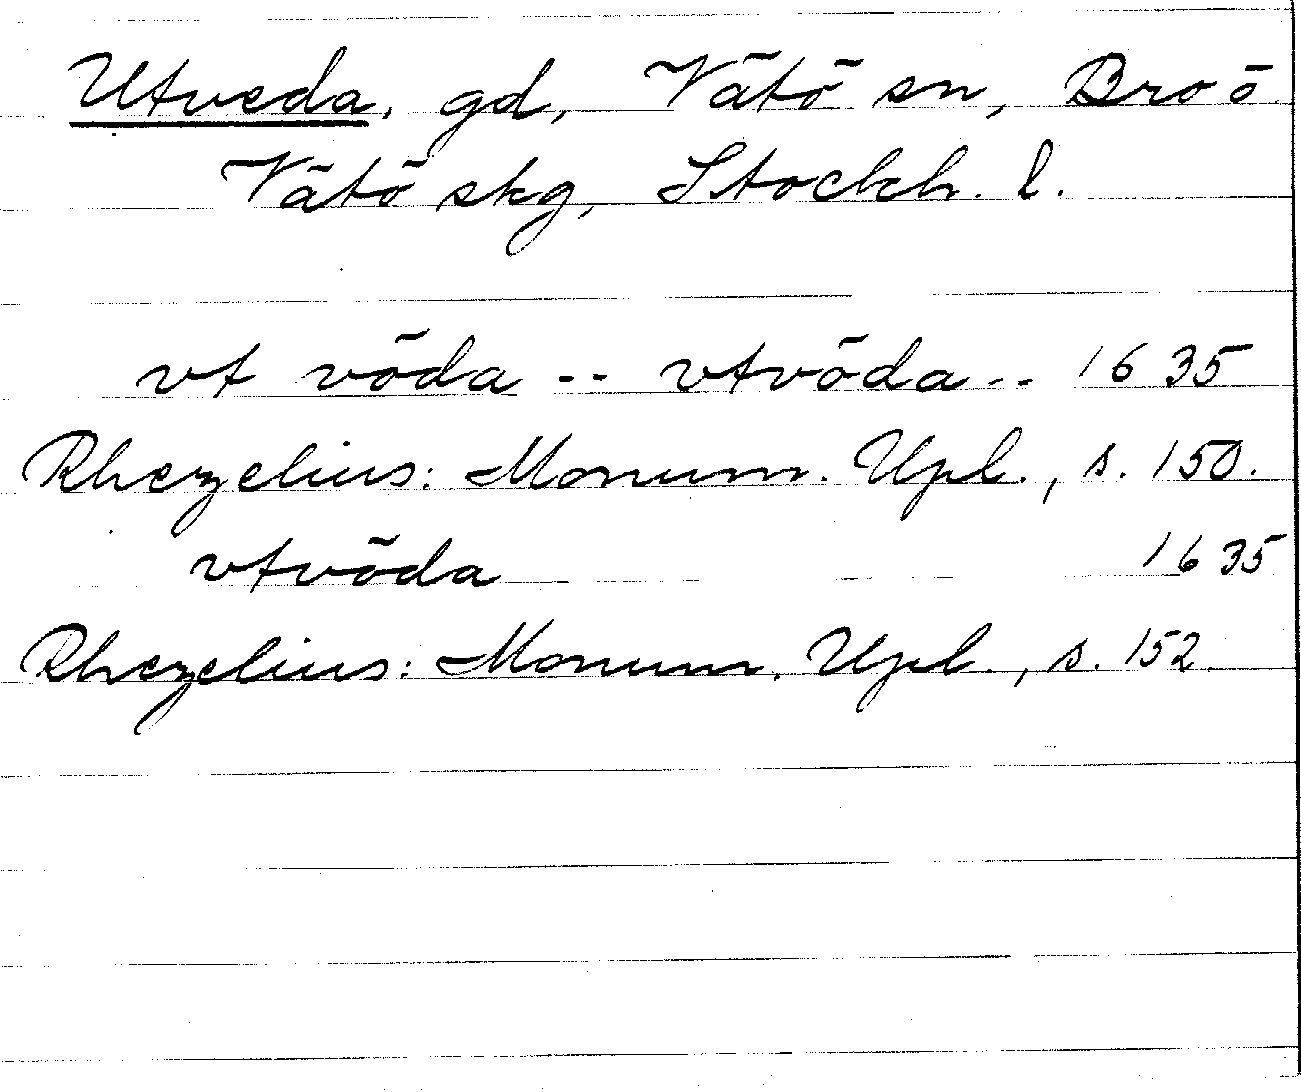 Utveda, gd, Vätö sn, Bro ö
Vätö skg, Stockh. l.
vt vöda -- vtvöda -- 1635
Rhezelius: Monum. Upl., s. 150.
vtvöda 1635
Rhezelius: Monum. Upl., s. 152.